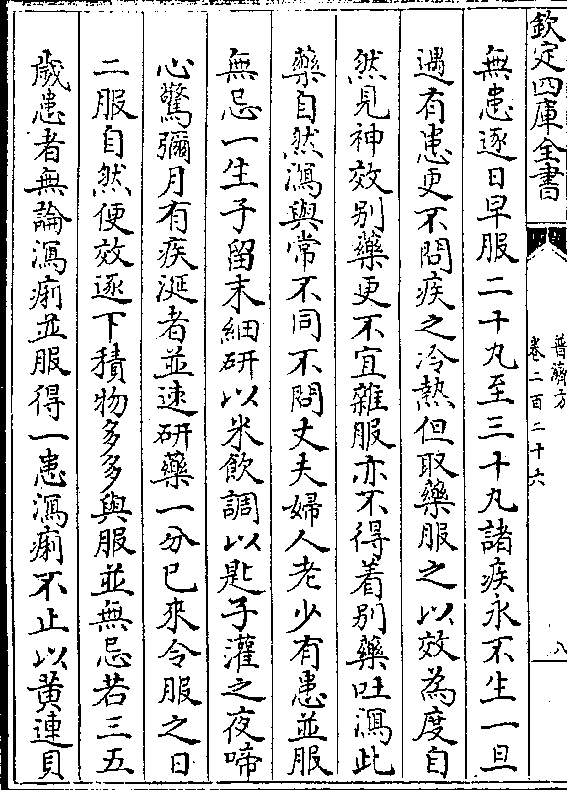 欽定四庫全書
普濟方
卷二百二十六
八
無患逐日早服二十九至三十九諸疾永不生一旦
遇有患更不問疾之冷熱但取藥服之以效為度自
然見神效别藥更不宜雜服亦不得着别藥吐瀉此
藥自然瀉與常不同不問丈夫婦人老少有患並服
無忌一生子留末細研以米飲調以匙子灌之夜啼
心驚彌月有疾涎者並速研藥一分已來令服之日
二服自然便效逐下積物多多與服並無忌若三五
歲患者無論瀉痢並服得一患瀉痢不止以黄連貝